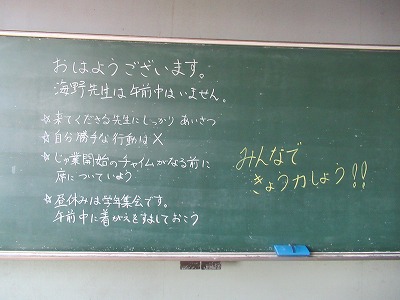 おはようございます。
海野先生は午前中はいません。
☆来てくださる先生にしっかりあいさつ
☆自分勝手な行動は×
☆じゅ業開始のチャイムがなる前に
席についていよう
☆昼休みは学年集会です。
午前中に着がえをすましておこう
みんなで
きょう力しよう!!